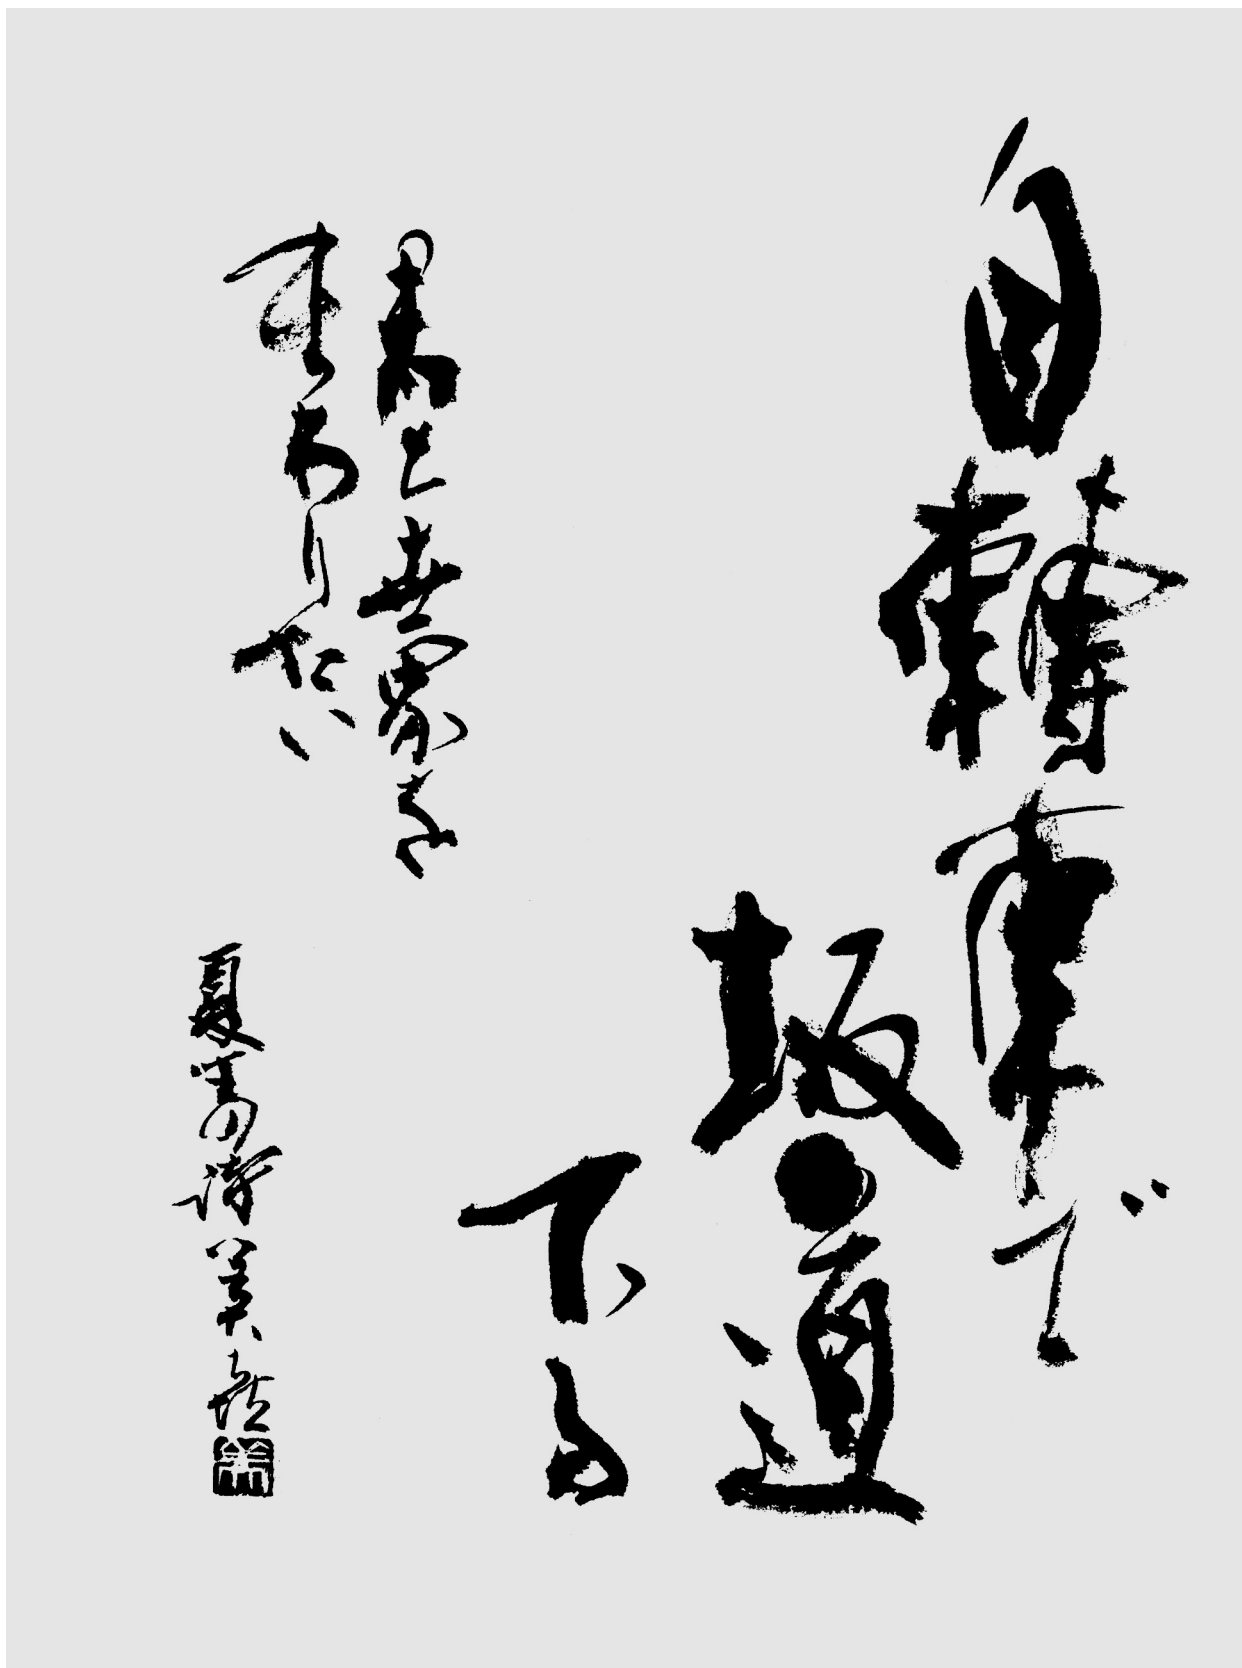 自轉車で
坂道
下る
と世界を
まわりたい
夏 詩 美